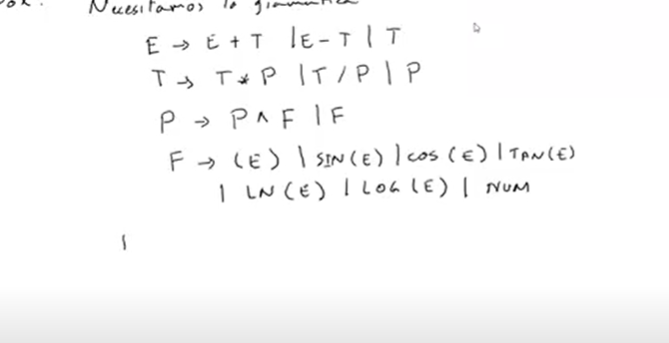 Necesitamos la gramatica
E → E + T | E - T | T
T → T * P | T / P | P
P → P ^ F | F
F → (E) | SIN(E) | COS(E) | TAN(E)
| LN(E) | LOG(E) | NUM